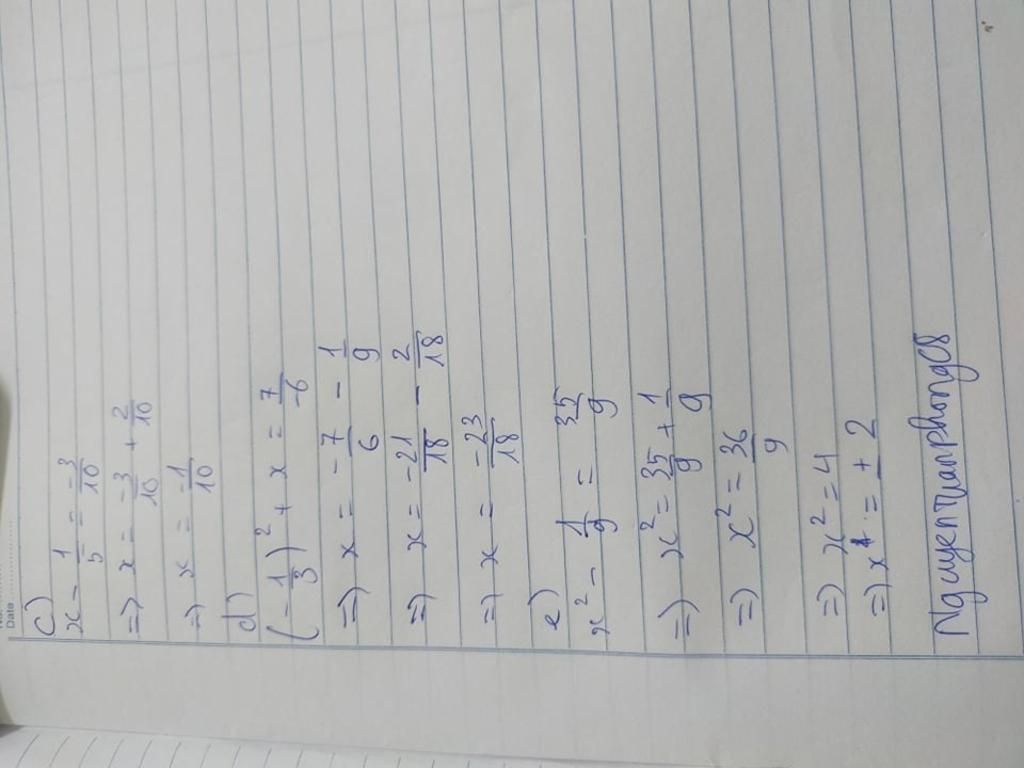 Date
c)
x - 1/5 = -3/10
=> x = -3/10 + 2/10
=> x = -1/10
d)
(-1/3)² + x = 7/-6
=> x = -7/6 - 1/9
=> x = -21/18 - 2/18
=> x = -23/18
e)
x² - 1/9 = 35/9
=> x² = 35/9 + 1/9
=> x² = 36/9
=> x² = 4
=> x = ± 2
Nguyentranphong68